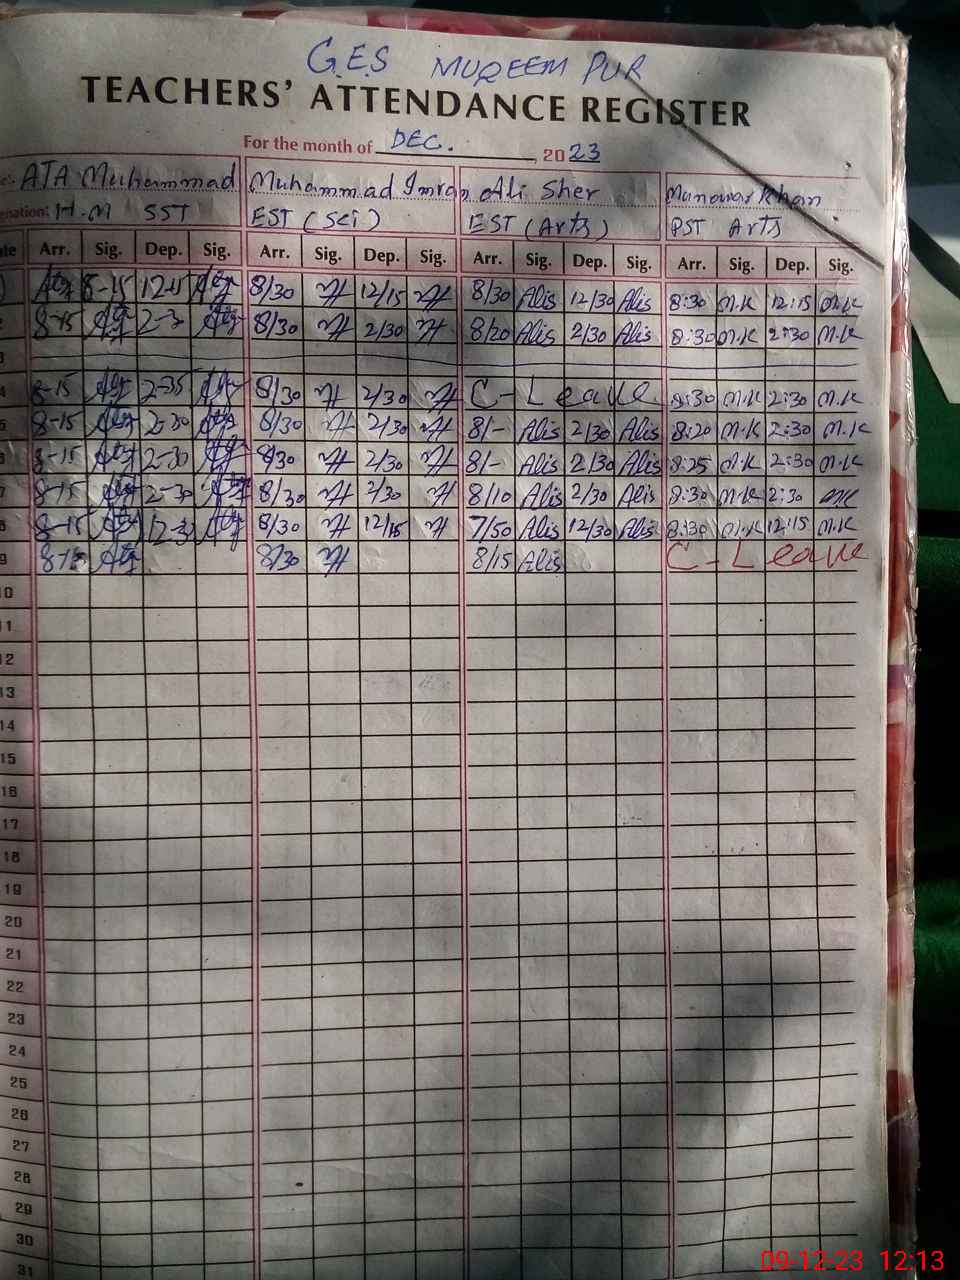 G.E.S MUQEEM PUR
TEACHERS' ATTENDANCE REGISTER
For the month of DEC. 2023
ATA Muhammad Muhammad Imran Ali Sher Munawar Khan
H.M SST EST (Sci) EST (Arts) PST Arts
Arr. Sig. Dep. Sig. Arr. Sig. Dep. Sig. Arr. Sig. Dep. Sig. Arr. Sig. Dep. Sig.
8-15 8/30 12/15 8/30 Alis 12/30 Alis 8:30 M.K 12:15 M.K
2 8-15 2-3 8/30 2/30 8/20 Alis 2/30 Alis 8:30 M.K 2:30 M.K
3
4 8-15 2-35 8/30 2/30 C-Leave 8:30 M.K 2:30 M.K
5 8-15 2-30 8/30 2/30 8/- Alis 2/30 Alis 8:20 M.K 2:30 M.K
8-15 2-30 8/30 2/30 8/- Alis 2/30 Alis 8:25 M.K 2:30 M.K
7 8-15 2-30 8/30 2/30 8/10 Alis 2/30 Alis 8:30 M.K 2:30 M.K
8-15 8/30 12/15 7/50 Alis 12/30 Alis 8:30 M.K 12:15 M.K
9 8-15 8/30 8/15 Alis C-Leave
10
11
12
13
14
15
16
17
18
19
20
21
22
23
24
25
26
27
28
29
30
31
09-12-23 12:13